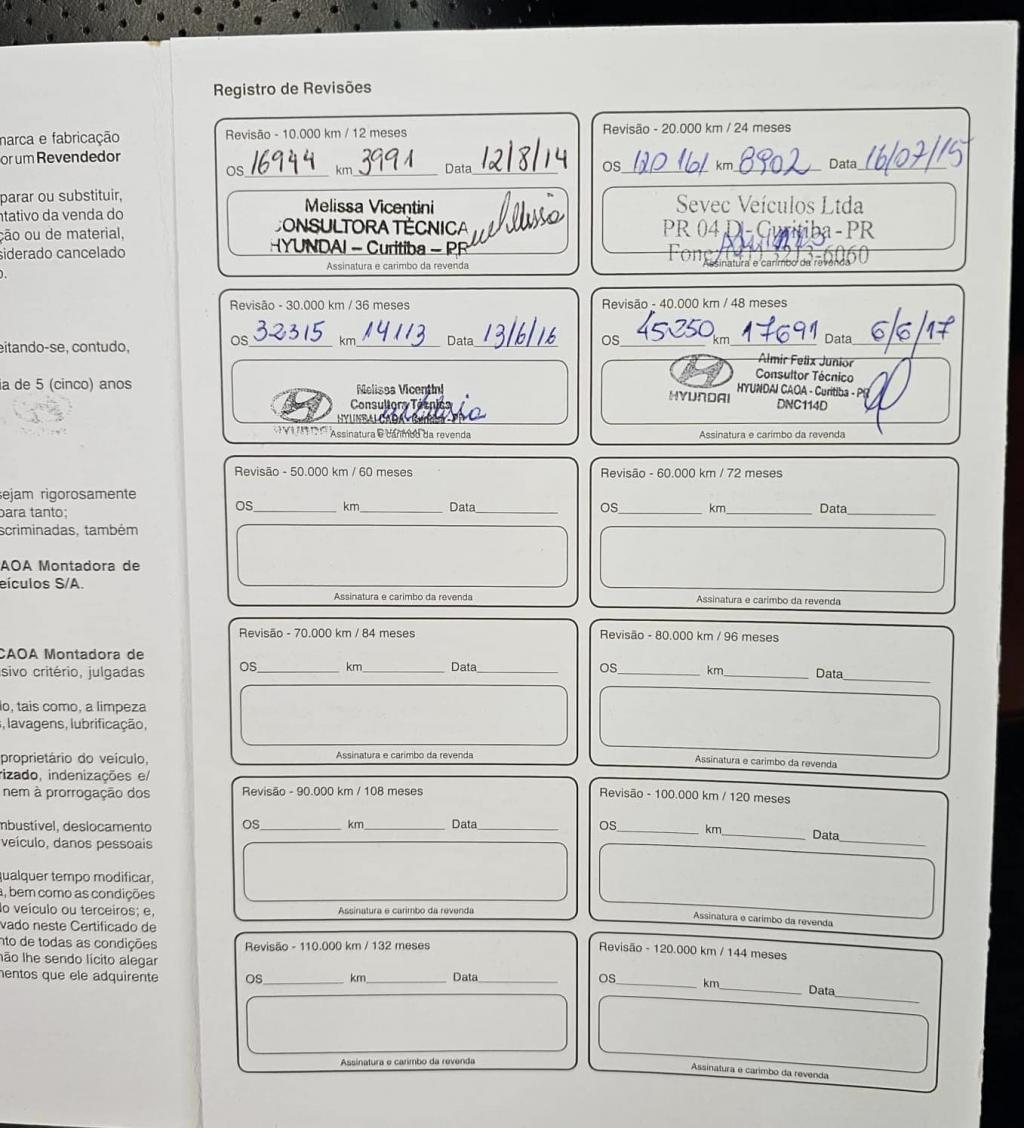 marca e fabricação
or um Revendedor
parar ou substituir,
ntativo da venda do
ção ou de material,
siderado cancelado
o.
eitando-se, contudo,
ia de 5 (cinco) anos
sejam rigorosamente
para tanto;
scriminadas, também
AOA Montadora de
eículos S/A.
CAOA Montadora de
sivo critério, julgadas
lo, tais como, a limpeza
s, lavagens, lubrificação,
proprietário do veículo,
rizado, indenizações e/
nem à prorrogação dos
mbustível, deslocamento
veículo, danos pessoais
qualquer tempo modificar,
a, bem como as condições
lo veículo ou terceiros; e,
vado neste Certificado de
nto de todas as condições
não lhe sendo lícito alegar
mentos que ele adquirente
Registro de Revisões
Revisão - 10.000 km / 12 meses
OS 16944 km 3991 Data 12/8/14
Melissa Vicentini
CONSULTORA TÉCNICA
HYUNDAI – Curitiba – PR
Assinatura e carimbo da revenda
Revisão - 20.000 km / 24 meses
OS 120161 km 8902 Data 16/07/15
Sevec Veículos Ltda
PR 04 D - Curitiba - PR
Fone (41) 3213-6060
Assinatura e carimbo da revenda
Revisão - 30.000 km / 36 meses
OS 32315 km 14113 Data 13/6/16
Melissa Vicentini
Consultora Técnica
HYUNDAI CAOA - Curitiba - PR
HYUNDAI
Assinatura e carimbo da revenda
Revisão - 40.000 km / 48 meses
OS 45250 km 17691 Data 6/6/17
HYUNDAI
Almir Felix Junior
Consultor Técnico
HYUNDAI CAOA - Curitiba - PR
DNC114D
Assinatura e carimbo da revenda
Revisão - 50.000 km / 60 meses
OS km Data
Assinatura e carimbo da revenda
Revisão - 60.000 km / 72 meses
OS km Data
Assinatura e carimbo da revenda
Revisão - 70.000 km / 84 meses
OS km Data
Assinatura e carimbo da revenda
Revisão - 80.000 km / 96 meses
OS km Data
Assinatura e carimbo da revenda
Revisão - 90.000 km / 108 meses
OS km Data
Assinatura e carimbo da revenda
Revisão - 100.000 km / 120 meses
OS km Data
Assinatura e carimbo da revenda
Revisão - 110.000 km / 132 meses
OS km Data
Assinatura e carimbo da revenda
Revisão - 120.000 km / 144 meses
OS km Data
Assinatura e carimbo da revenda